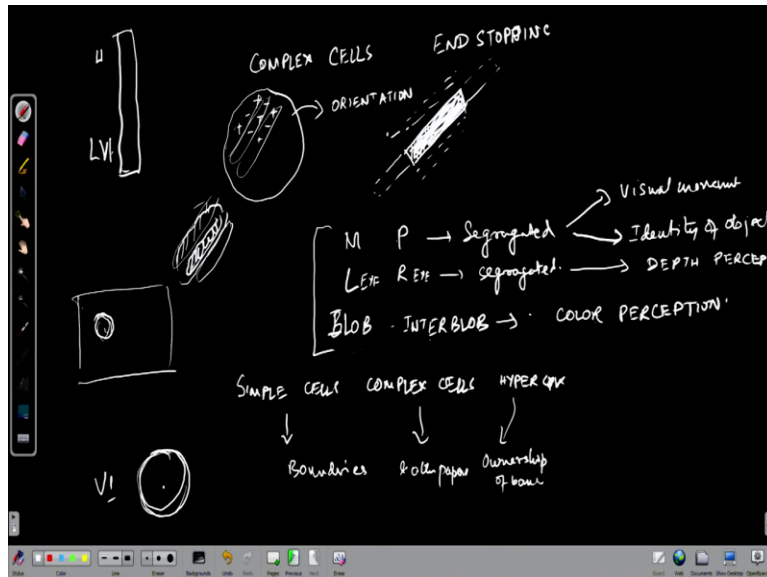 COMPLEX CELLS
END STOPPING
ORIENTATION
M P → Segregated
Visual
Identity of object
L EYE R EYE → segregated. → DEPTH PERCEP
BLOB - INTERBLOB → COLOR PERCEPTION
SIMPLE CELLS COMPLEX CELLS HYPER
Boundries
Ownership
of
V1
Stylus
Color
Line
Eraser
Backgrounds
Undo
Redo
Pages
Previous
Next
Erase
Board
Web
Documents
Show Desktop
OpenBoard